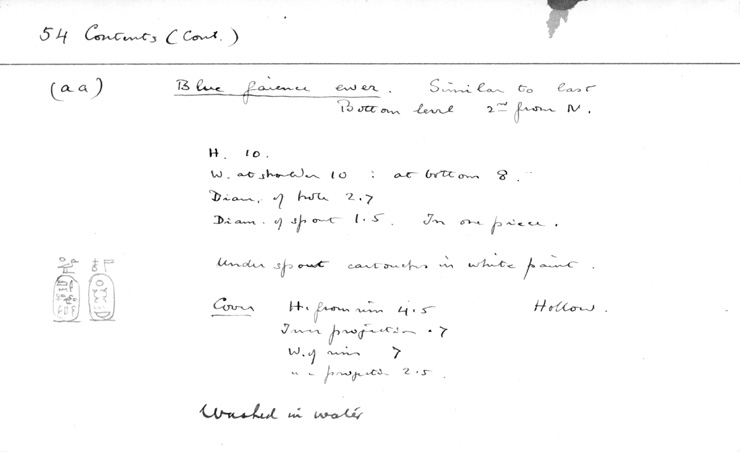 54 Contents (Cont.)
(aa) Blue faience ewer. Similar to last
Bottom level 2nd from N.
H. 10.
W. at shoulder 10 : at bottom 8.
Diam. of hole 2.7
Diam. of spout 1.5. In one piece.
Under spout cartouches in white paint.
Cover H. from rim 4.5 Hollow.
Inner projection .7
W. of rim 7
" " projection 2.5.
Washed in water